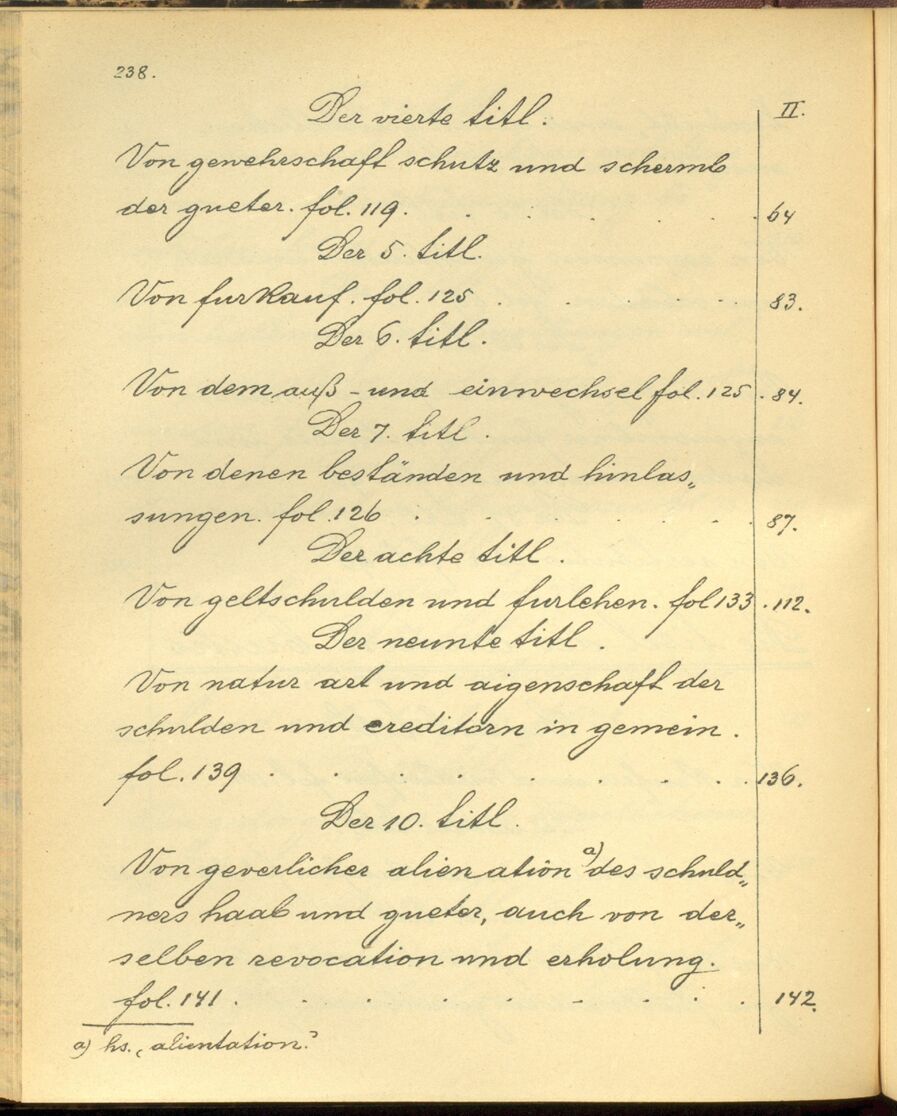 238.
II.
Der vierte titl.
Von gewehrschaft schutz und schermb
der gueter. fol. 119. . . . . . . 64
Der 5. titl.
Von furkauf. fol. 125 . . . . . 83.
Der 6. titl.
Von dem auß- und einwechsel fol. 125 . 84.
Der 7. titl.
Von denen beständen und hinlas„
sungen. fol. 126 . . . . . . . 87.
Der achte titl.
Von geltschulden und furlehen. fol 133 . 112.
Der neunte titl.
Von natur art und aigenschaft der
schulden und creditorn in gemein.
fol. 139 . . . . . . . . . 136.
Der 10. titl.
Von geverlicher alienation a) des schuld„
ners haab und gueter, auch von der„
selben revocation und erholung.
fol. 141 . . . . . . . . . 142.
a) hs. „alientation."